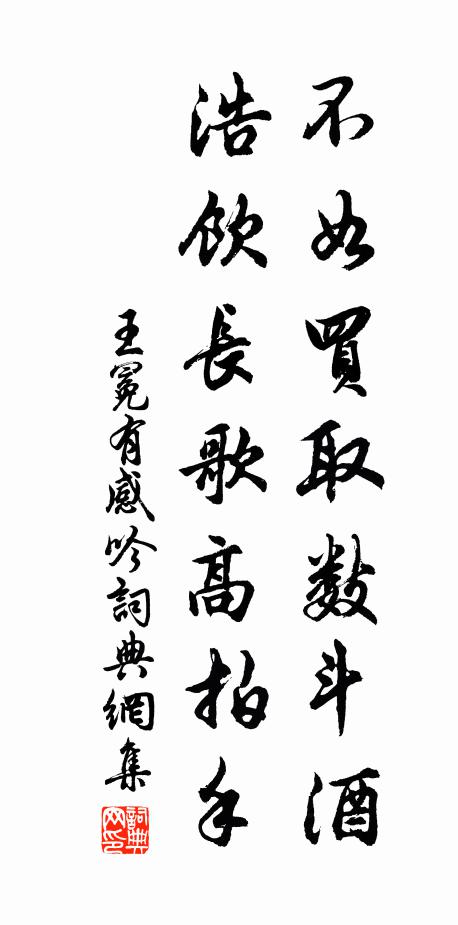 不如買取數斗酒
浩飲長歌高拍手
王冕有感吟詞典網集
詞典網印